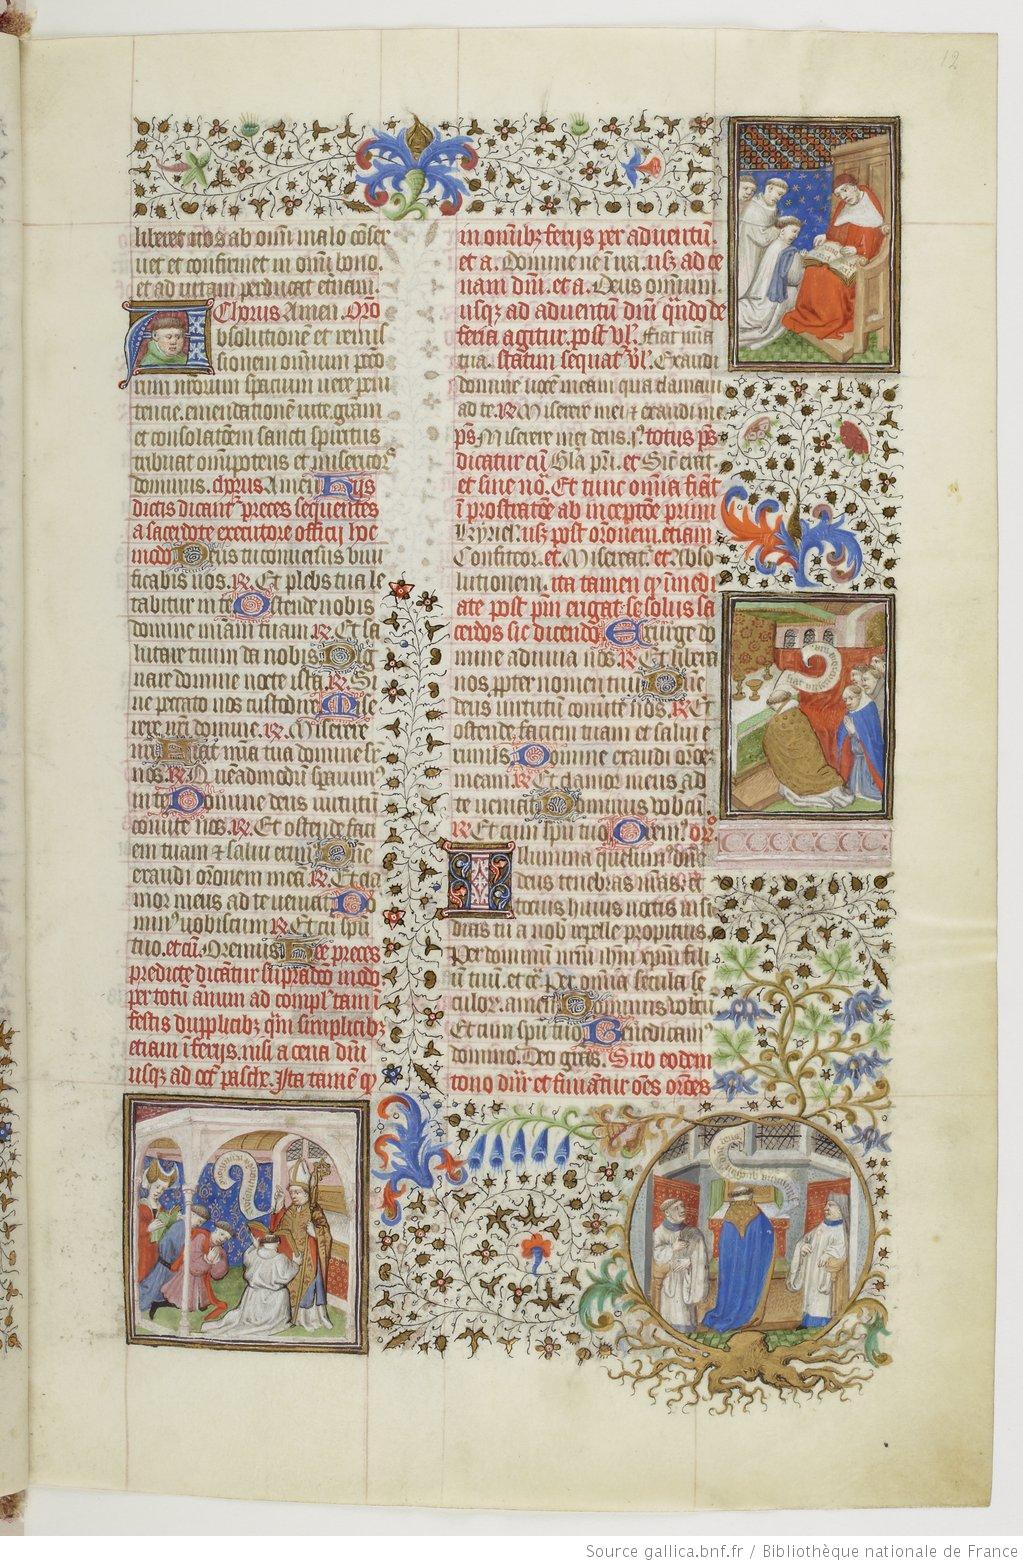 12
liberet nos ab oīn malo cōser
uet et confirmet in omī bono.
et ad uitam perducat etnam.
Chorus Amen. Orō
Absolutionē et remis
sionem omnium pctō
rum nrōrum spacium uere peni
tencie. emendationē uite. grām
et consolatōem sancti spiritus
tribuat omīpotens et misericorˢ
dominus. chorus Amen Hijs
dictis dicantʳ preces sequentes
a sacerdote executore officij hoc
modo Deus tu conuersus uiui
ficabis nos. ℟. Et plebs tua le
tabitur in te Ostende nobis
domine mīam tuam ℟. Et sa
lutare tuum da nobis Dig
nare domine nocte ista ℟. Si
ne peccato nos custodire Mise
rere nrī domine. ℟. Miserere
nrī Fiat mīa tua domine sr
nos ℟ Quēadmodū sperauimˢ
in te Domine deus uirtutū
conuerte nos. ℟. Et ostende faci
em tuam & salui erimˢ Dnē
exaudi orōnem meā ℟ Et cla
mor meus ad te ueniat Do
minˢ uobiscum ℟ Et cū spū
tuo. et cū. Oremus Hee preces
predicte dicātur supradco modo
per totū ānum ad compl̄ tam ī
festis dupplicibȝ qm̄ simplicibȝ
etiam ī ferijs. nisi a cena dnī
usqȝ ad oct̄ pasche. Ita tamen qȝ
in omībȝ ferijs per aduentū.
et a. Domine ne ī ira. usȝ ad ce
nam dnī. et a. Deus omnium.
usqȝ ad aduentū dnī qn̄do de
feria agitur. post V̄l. Fiat mīa
tua. statim sequatʳ V̄l. Exaudi
domine uocem meam qua clamaui
ad te. ℟ Miserere mei & exaudi me.
p̄s Miserere mei deus. ī. totus p̄s
dicatur cū Glā pr̄i. et Sic̄ erat
et sine nō. Et tunc omīa fiāt
ī prostratōe ab inceptōe primi
kyriel̄. usȝ post orōnem. etiam
Confiteor. et. Misereatʳ. et Abso
lutionem. Ita tamen qȝ īmedi
ate post pm̄ erigat se solus sa
cerdos sic dicendo Exurge do
mine adiuua nos ℟ Et libera
nos ꝓpter nomen tuū Dn̄e
deus uirtutū conuerte nos. ℟ Et
ostende faciem tuam et salui e
rimus Domine exaudi orōeȝ
meam. ℟ Et clamor meus ad
te ueniat Dominus uobiscū
℟ Et cum spū tuo Oremˢ orō
Illumina quesumˢ dn̄e
deus tenebras nrās. et
totius huius noctis insi
dias tu a nob̄ repelle propitius.
Per dominū nrm̄ ihm̄ xpm̄ fili
ū tuū. et c̄. Per omīa secula se
culor. amen Dominus uobiscū
Et cum spū tuo Benedicamˢ
domino. Deo grās. Sub eodem
tono dnr̄ et finiātur oēs orōnes
Source gallica.bnf.fr / Bibliothèque nationale de France